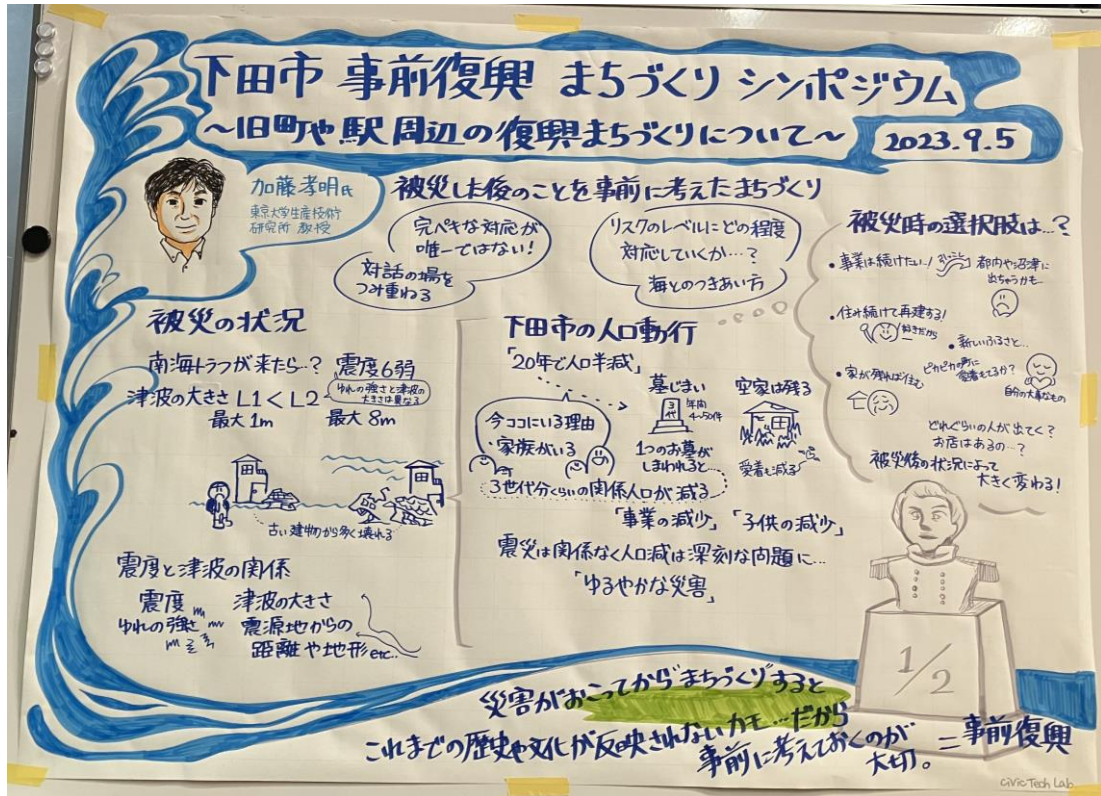 下田市 事前復興 まちづくり シンポジウム
～旧町や駅周辺の復興まちづくりについて～
2023.9.5
加藤孝明氏
東京大学生産技術
研究所 教授
被災した後のことを事前に考えたまちづくり
完ペキな対応が
唯一ではない！
対話の場を
つみ重ねる
リスクのレベルにどの程度
対応していくか…？
海とのつきあい方
被災の状況
南海トラフが来たら…？ 震度6弱
津波の大きさ L1 < L2
ゆれの強さと津波の
大きさは異なる
最大1m
最大8m
古い建物から多く壊れる
震度と津波の関係
震度
ゆれの強さ
津波の大きさ
震源地からの
距離や地形etc..
下田市の人口動行
「20年で人口半減」
今ココにいる理由
・家族がいる
墓じまい
年間
4~50件
1つのお墓が
しまわれると
3世代分くらいの関係人口が減る
空家は残る
愛着も減る
「事業の減少」「子供の減少」
震災は関係なく人口減は深刻な問題に…
「ゆるやかな災害」
被災時の選択肢は…？
・事業は続けたい！
都内や沼津に
出ちゃうかも…
・住み続けて再建する！
好きだから
・新しいふるさと…
ピカピカの町に
愛着もてるか？
自分の大事なもの
・家が残れば住む
どれぐらいの人が出てく？
お店はあるの…？
被災後の状況によって
大きく変わる！
1/2
災害がおこってから"まちづくり"すると
これまでの歴史や文化が反映されないカモ…だから
事前に考えておくのが
大切。
＝事前復興
Civic Tech Lab.